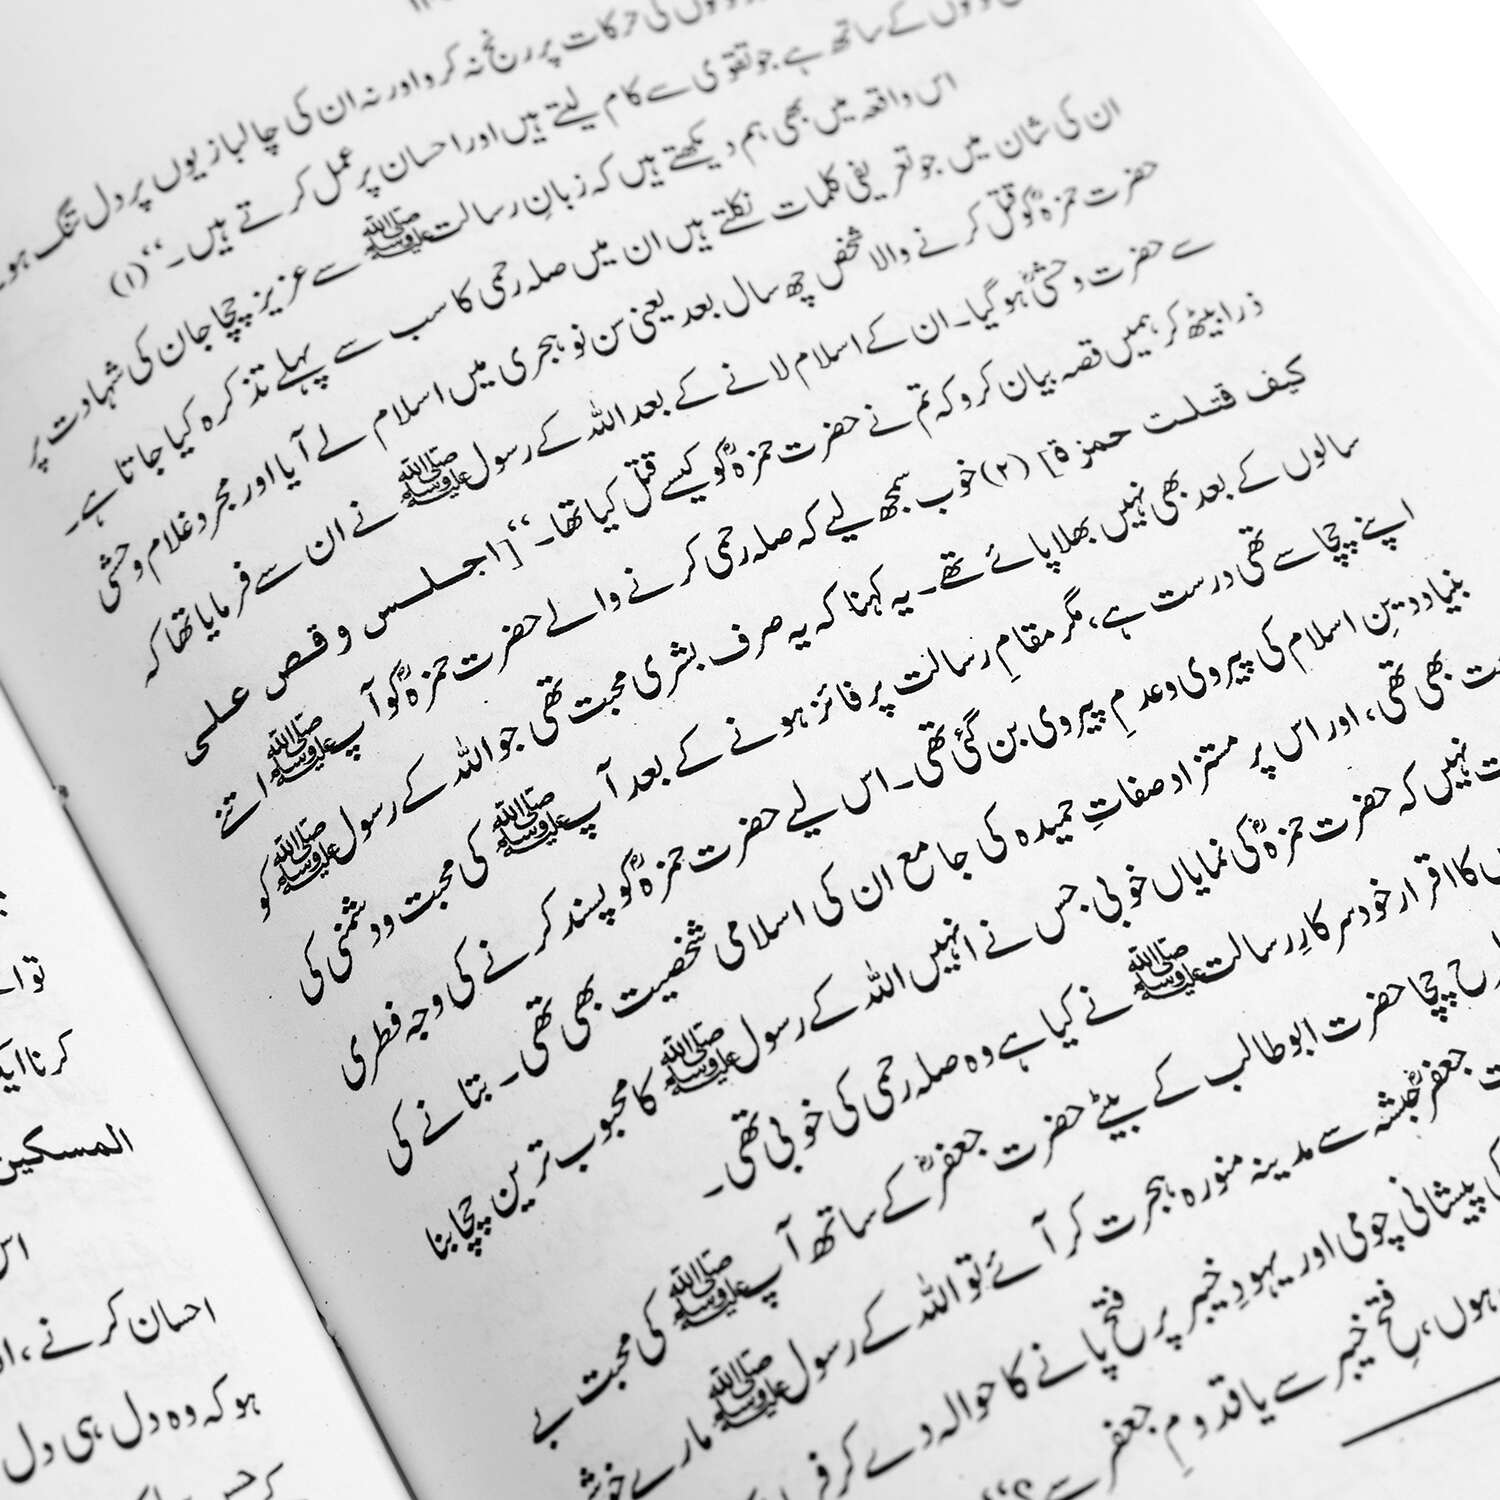 لوگوں کی حرکات پر رنج نہ کرو اور نہ ان کی چالبازیوں پر دل تنگ ہو۔
کے ساتھ ہے جو تقویٰ سے کام لیتے ہیں اور احسان پر عمل کرتے ہیں۔‘‘(۱)
اس واقعہ میں بھی ہم دیکھتے ہیں کہ زبانِ رسالت ﷺ سے عزیز چچا جان کی شہادت پر
ان کی شان میں جو تعریفی کلمات نکلتے ہیں ان میں صلہ رحمی کا سب سے پہلے تذکرہ کیا جاتا ہے۔
حضرت حمزہؓ کو قتل کرنے والا شخص چھ سال بعد یعنی سن نو ہجری میں اسلام لے آیا اور مجرد غلام وحشی
سے حضرت وحشیؓ ہوگیا۔ ان کے اسلام لانے کے بعد اللہ کے رسول ﷺ نے ان سے فرمایا تھا کہ
ذرا بیٹھ کر ہمیں قصہ بیان کرو کہ تم نے حضرت حمزہؓ کو کیسے قتل کیا تھا۔‘‘ [اجلس وقص علی
کیف قتلت حمزة] (۲) خوب سمجھ لیے کہ صلہ رحمی کرنے والے حضرت حمزہؓ کو آپ ﷺ اتنے
سالوں کے بعد بھی نہیں بھلا پائے تھے۔ یہ کہنا کہ یہ صرف بشری محبت تھی جو اللہ کے رسول ﷺ کو
اپنے چچا سے تھی درست ہے، مگر مقامِ رسالت پر فائز ہونے کے بعد آپ ﷺ کی محبت و دشمنی کی
بنیاد دینِ اسلام کی پیروی و عدمِ پیروی بن گئی تھی۔ اس لیے حضرت حمزہؓ کو پسند کرنے کی وجہ فطری
بھی تھی، اور اس پر مستزاد صفاتِ حمیدہ کی جامع ان کی اسلامی شخصیت بھی تھی۔ بتانے کی
نہیں کہ حضرت حمزہؓ کی نمایاں خوبی جس نے انہیں اللہ کے رسول ﷺ کا محبوب ترین چچا بنا
کا اقرار خود سرکارِ رسالت ﷺ نے کیا ہے وہ صلہ رحمی کی خوبی تھی۔
چچا حضرت ابوطالب کے بیٹے حضرت جعفرؓ کے ساتھ آپ ﷺ کی محبت بے
جعفرؓ حبشہ سے مدینہ منورہ ہجرت کر آئے تو اللہ کے رسول ﷺ مارے
کی پیشانی چومی اور یہودِ خیبر پر فتح پانے کا حوالہ دے کر
ہوں، فتحِ خیبر سے یا قدومِ جعفر سے
کرنا
المسکین
اس
احسان کرنے،
ہو کہ وہ دل ہی دل